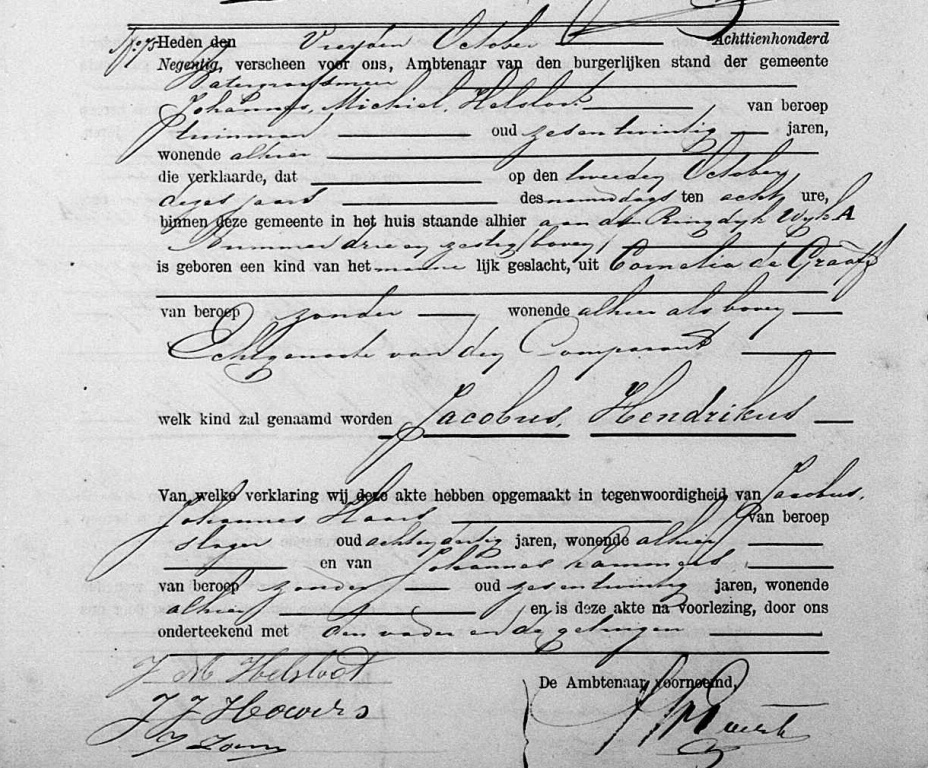 No 75 Heden den Vierden October Achttienhonderd
Negentig, verscheen voor ons, Ambtenaar van den burgerlijken stand der gemeente
Watergraafsmeer
Johannes, Michiel, Helsloot van beroep
tuinman oud zesentwintig jaren,
wonende alhier
die verklaarde, dat op den tweeden October
dezes jaars des namiddags ten acht ure,
binnen deze gemeente in het huis staande alhier aan den Ringdijk Wijk A
Nummer drie en zestig /boven/
is geboren een kind van het manne lijk geslacht, uit Cornelia de Graaff
van beroep zonder wonende alhier als boven
Echtgenoote van den Comparant
welk kind zal genaamd worden Jacobus, Hendrikus
Van welke verklaring wij deze akte hebben opgemaakt in tegenwoordigheid van Jacobus,
Johannes van beroep
slager oud jaren, wonende alhier
en van Johannes
van beroep zonder oud zesentwintig jaren, wonende
alhier en is deze akte na voorlezing, door ons
onderteekend met den vader en de getuigen
J M Helsloot
De Ambtenaar voornoemd,
J J
J